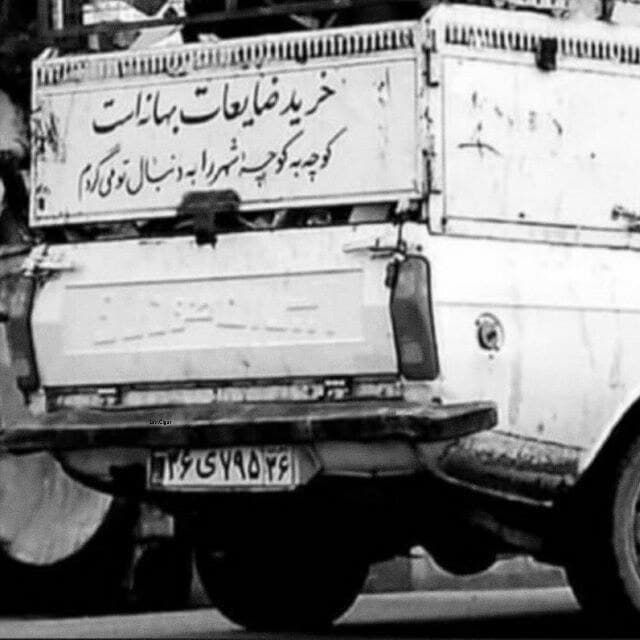 خرید ضایعات بهانه است
کوچه به کوچه شهر را به دنبال تو می گردم
۲۶ی۷۹۵ ۲۶